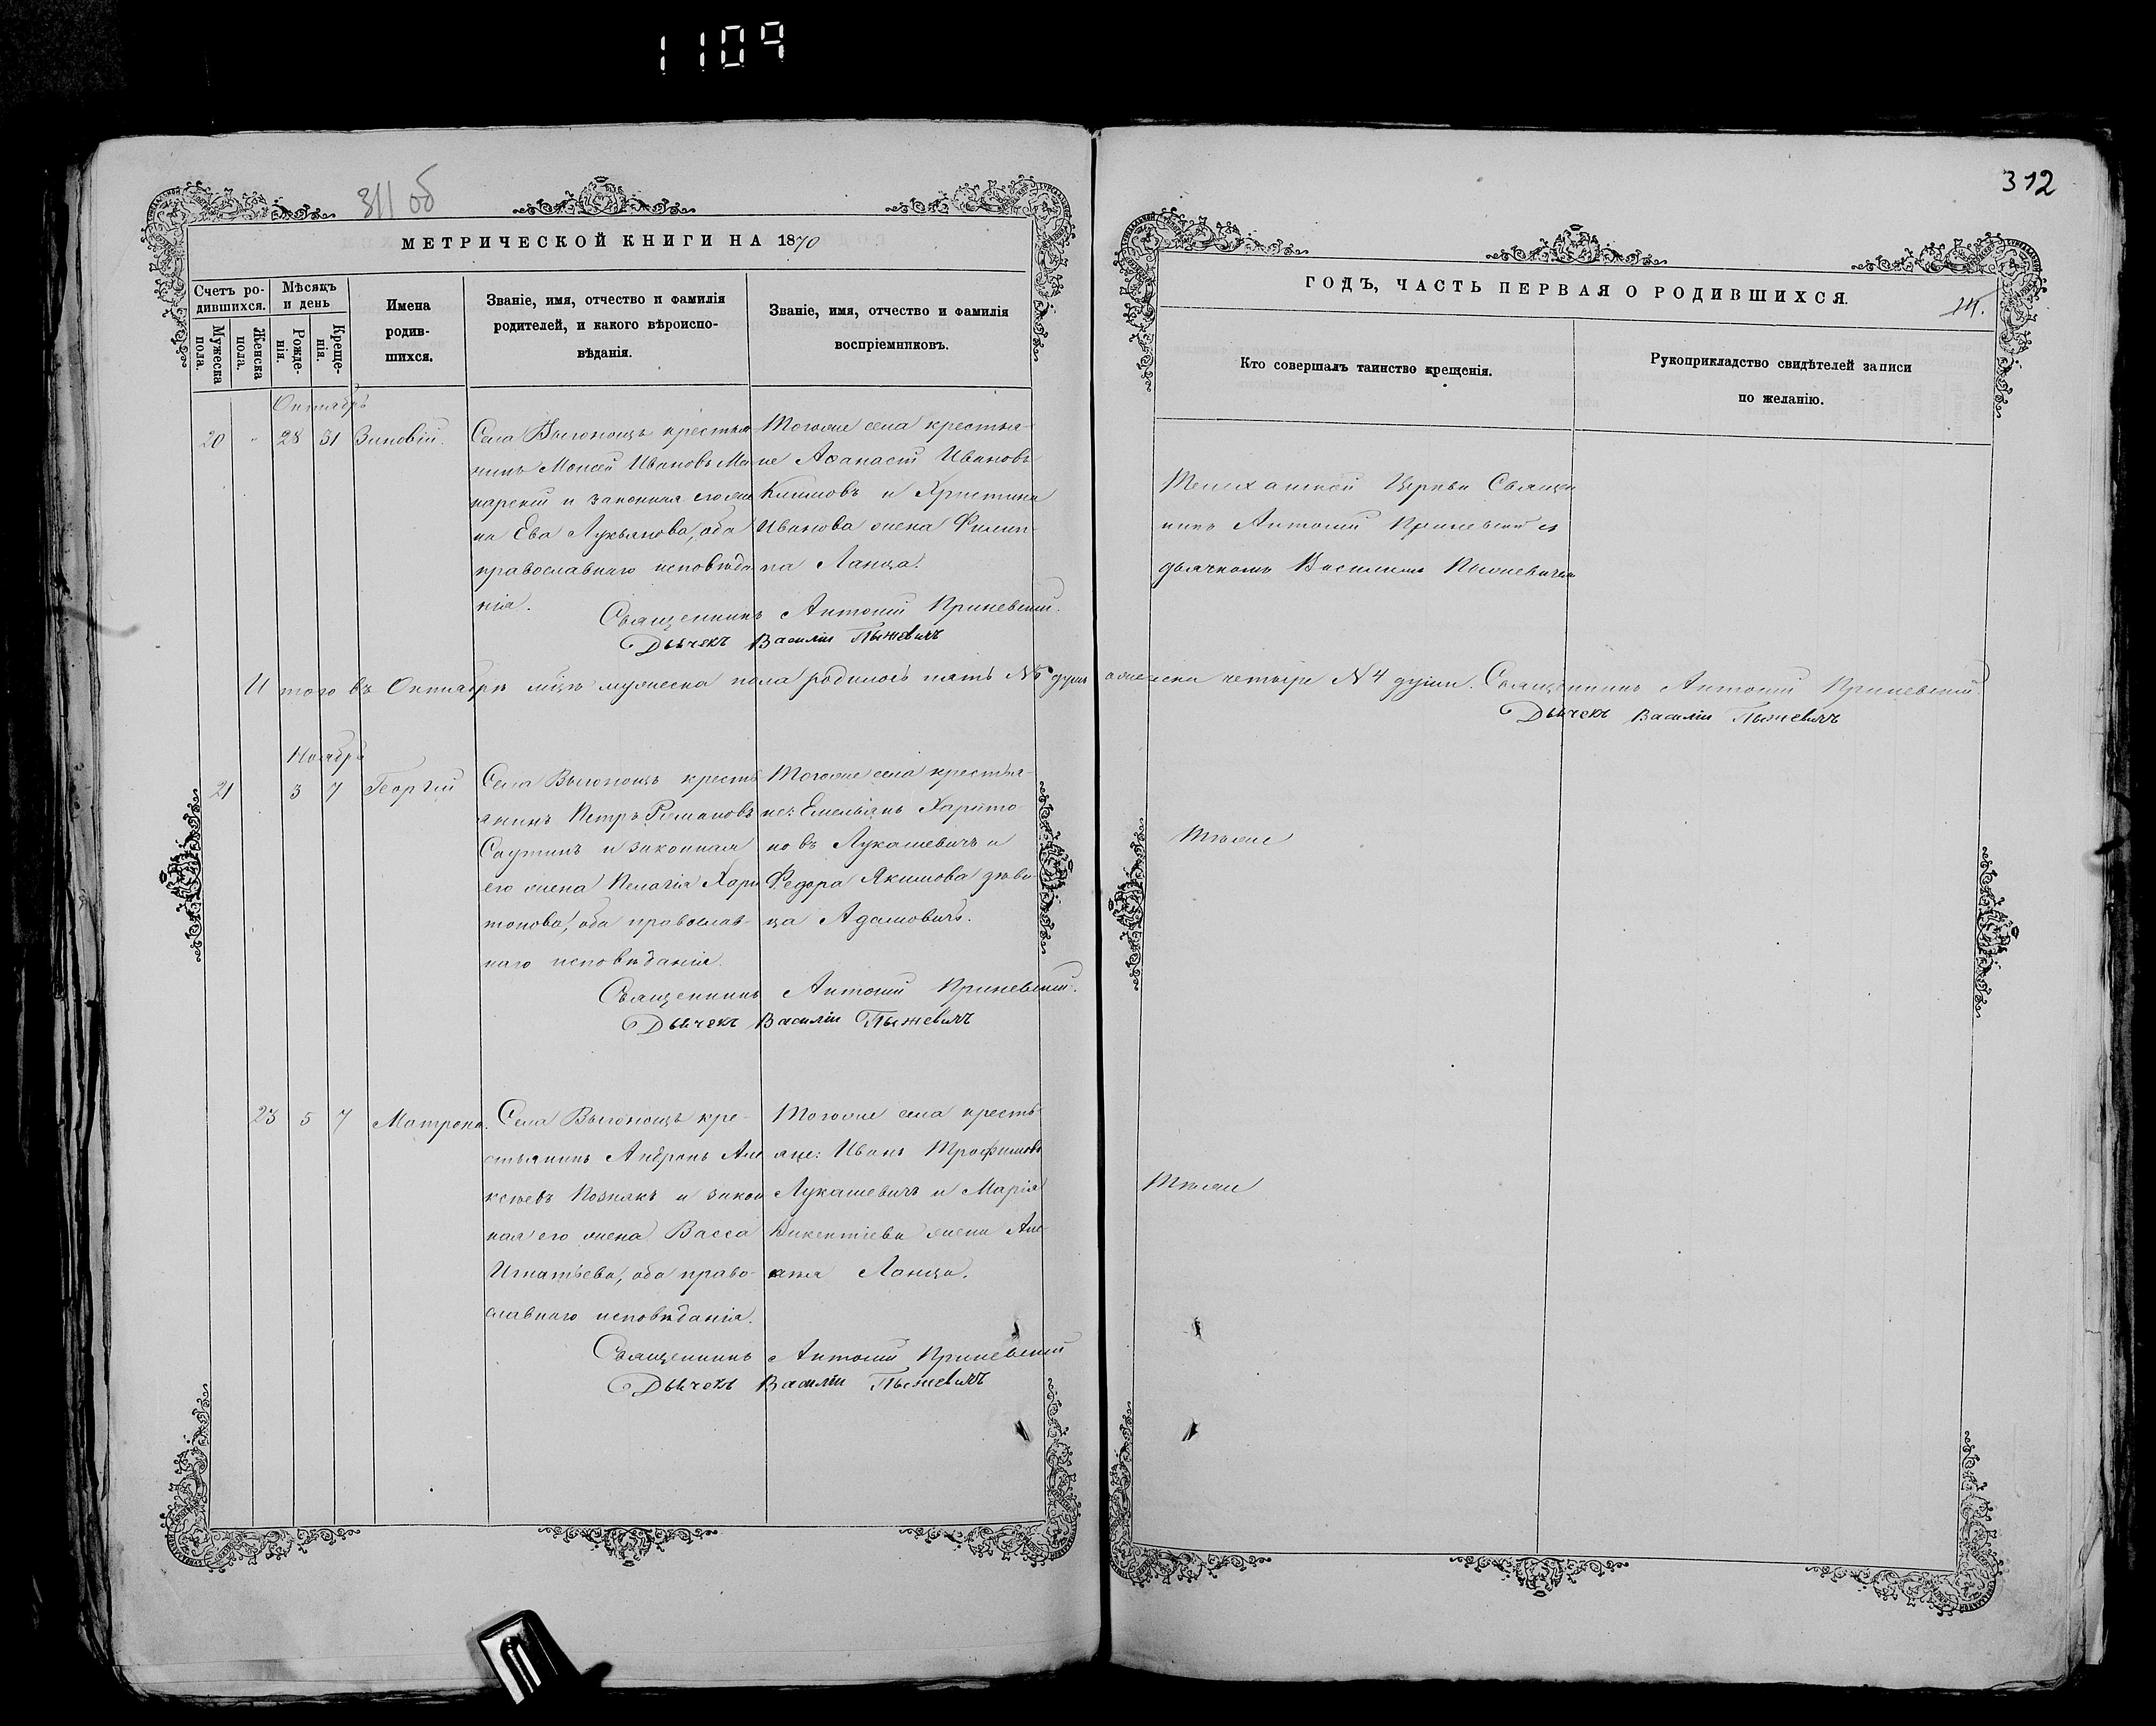 1109
311 об
МЕТРИЧЕСКОЙ КНИГИ НА 1870
Счетъ ро-
дившихся.
Мѣсяцъ
и день
Мужеска
пола.
Женска
пола.
Рожде-
нія.
Креще-
нія.
Имена
родив-
шихся.
Званіе, имя, отчество и фамилія
родителей, и какого вѣроиспо-
вѣданія.
Званіе, имя, отчество и фамилія
воспріемниковъ.
Октябрь
20 " 28 31 Зиновій.
Села Выгонощъ крестья-
нинъ Моисей Ивановъ
и законная его же-
на Ева Лукьянова, оба
православнаго исповѣда
нія.
Тогоже села крестья-
не Аѳанасій Ивановъ
Климовъ и Христина
Иванова жена Филип-
па Ланца.
Священникъ Антоній Криневскій.
Дьячекъ Василій Пыжевичъ
Итого въ Октябрѣ мцѣ мужеска пола родилось пять №5 душъ а женска четыре №4 души. Священникъ Антоній Криневскій
Дьячекъ Василій Пыжевичъ
Ноябрь
21 3 7 Георгій
Села Выгонощъ кресть
янинъ Петръ Романовъ
Саутинъ и законная
его жена Пелагія Хари
тонова, оба православ-
наго исповѣданія.
Тогоже села крестья-
не: Емельянъ Харито-
новъ Лукашевичъ и
Федора Якимова дѣви-
ца Адамовичъ.
Священникъ Антоній Криневскій.
Дьячекъ Василій Пыжевичъ
23 5 7 Матрона.
Села Выгонощъ кре-
стьянинъ Андронъ Але
ксѣевъ Познякъ и закон
ная его жена Васса
Игнатьева, оба право-
славнаго исповѣданія.
Тогоже села кресть-
яне: Иванъ Трофимовъ
Лукашевичъ и Марія
Викентіева жена
Ланца.
Священникъ Антоній Криневскій
Дьячекъ Василій Пыжевичъ
312
ГОДЪ, ЧАСТЬ ПЕРВАЯ О РОДИВШИХСЯ.
14.
Кто совершалъ таинство крещенія.
Рукоприкладство свидѣтелей записи
по желанію.
Телеханской Церкви Священ
никъ Антоній Криневскій съ
дьячкомъ Василіемъ Пыжевичемъ
Тѣже
Тѣже